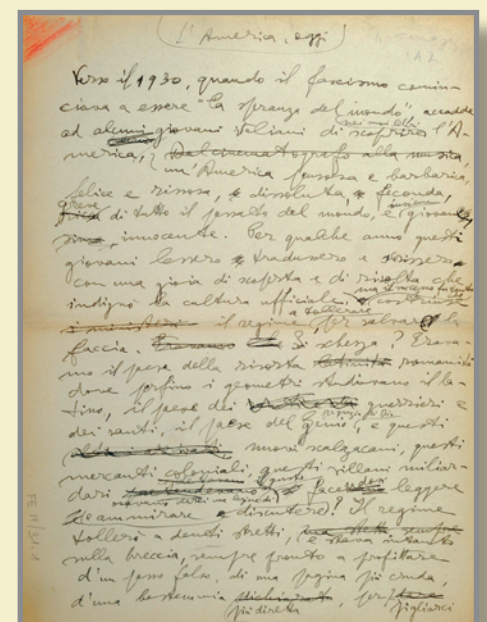 L'America, oggi
Verso il 1930, quando il fascismo comin-
ciava a essere "la speranza del mondo", accadde
ad alcuni giovani italiani di scoprire nei suoi libri l'A-
merica, Dal cinematografo alla musica,
un'America pensosa e barbarica,
felice e rissosa, dissoluta, feconda,
greve di tutto il passato del mondo, e insieme giovane,
innocente. Per qualche anno questi
giovani lessero tradussero e scrissero
con una gioia di scoperta e di rivolta che
indignò la cultura ufficiale, ma il successo fu tanto che costrinse
il regime a tollerare, per salvare la
faccia. Si scherza? Erava-
mo il paese della risorta romanità
dove perfino i geometri studiavano il la-
tino, il paese dei guerrieri e
dei santi, il paese del Genio per grazia di Dio, e questi
nuovi scalzacani, questi
mercanti coloniali, questi villani miliar-
dari osavano darci una lezione di gusto facendosi leggere
discutere e ammirare? Il regime
tollerò a denti stretti, e stava intanto
sulla breccia, sempre pronto a profittare
d'un passo falso, di una pagina più cruda,
d'una bestemmia più diretta, per pigliarci
FE II/31.1